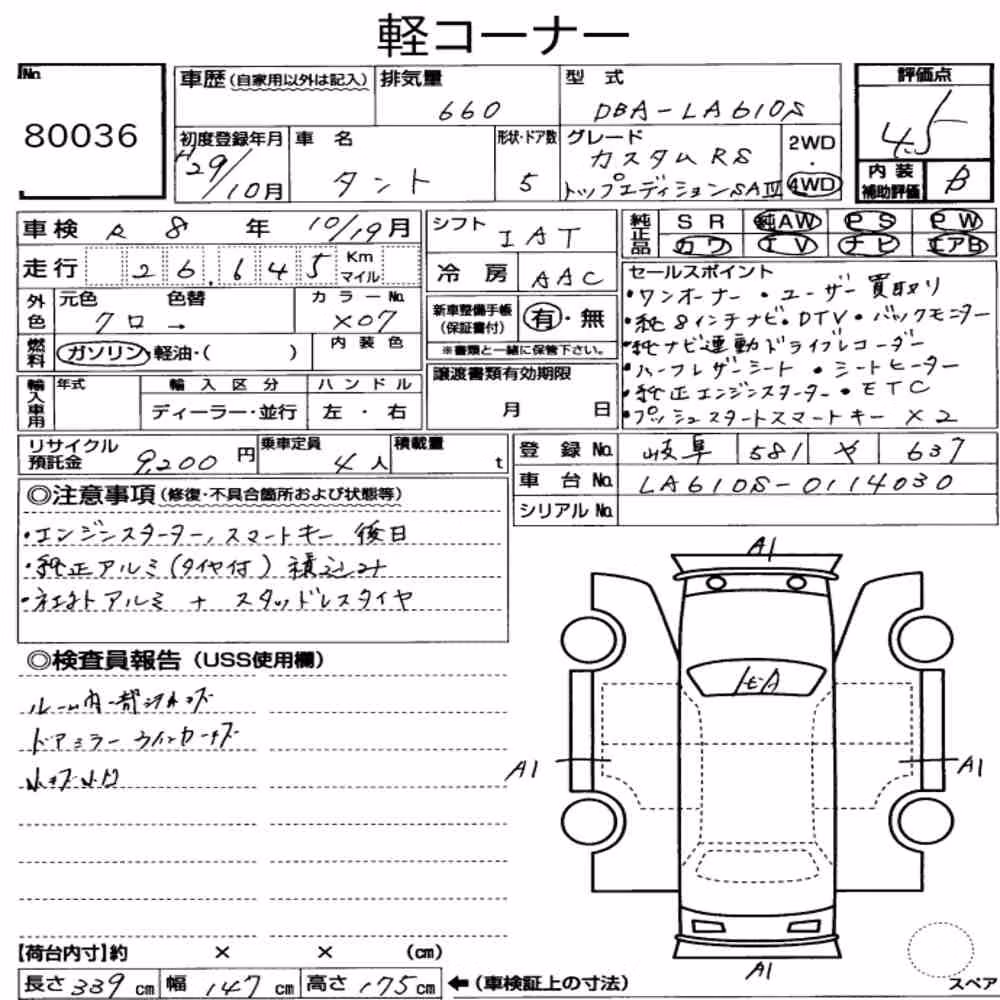 軽コーナー
No. 80036
車歴（自家用以外は記入）
排気量 660
型式 DBA-LA610S
評価点 4.5
初度登録年月 H29/10月
車名 タント
形状・ドア数 5
グレード カスタムRS
トップエディションSAⅣ
2WD・4WD
内装補助評価 B
車検 R8年 10/19月
走行 26,645 Km マイル
外色 元色 クロ → 色替
カラーNo. X07
燃料 ガソリン・軽油・( )
内装色
輸入車用 年式
輸入区分 ディーラー・並行
ハンドル 左・右
シフト IAT
冷房 AAC
新車整備手帳（保証書付） 有・無
※書類と一緒に保管下さい。
譲渡書類有効期限
月 日
純正品 SR 純AW PS PW
カワ TV ナビ エアB
セールスポイント
・ワンオーナー ・ユーザー買取り
・純8インチナビ・DTV・バックモニター
・純ナビ連動ドライブレコーダー
・ハーフレザーシート ・シートヒーター
・純正エンジンスターター・ETC
・プッシュスタートスマートキー×2
リサイクル預託金 9,200円
乗車定員 4人
積載量 t
登録No. 岐阜 581 や 637
車台No. LA610S-0114030
シリアルNo.
◎注意事項（修復・不具合箇所および状態等）
・エンジンスターター、スマートキー 後日
・純正アルミ（タイヤ付）積込み
・社外アルミ + スタッドレスタイヤ
◎検査員報告（USS使用欄）
ルーム内一部
ドアミラーウインカーキズ
小キズ小凹
A1
A1
A1
A1
【荷台内寸】約 × × (cm)
長さ339cm 幅147cm 高さ175cm ←（車検証上の寸法）
スペア